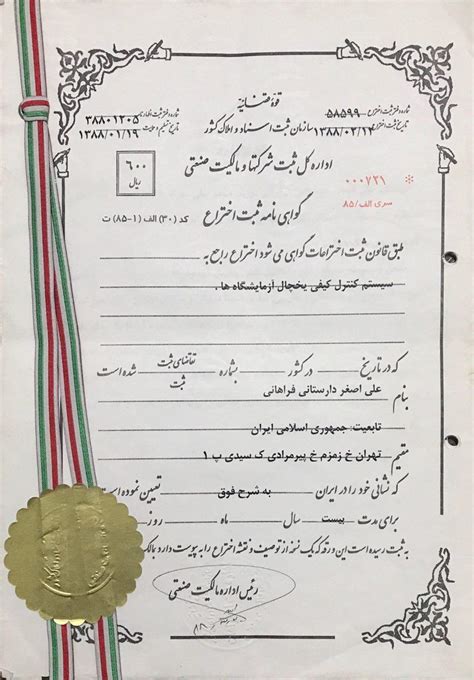 قوه قضائیه
شماره دفتر ثبت اختراع ۵۸۵۹۹
تاریخ ثبت اختراع ۱۳۸۸/۰۲/۱۲
سازمان ثبت اسناد و املاک کشور
شماره دفتر ثبت اظهارنامه ۳۸۸۰۱۲۰۵
۱۳۸۸/۰۱/۱۹
اداره کل ثبت شرکتها و مالکیت صنعتی
۶۰۰
ریال
۰۰۰۷۲۱ *
سری الف/۸۵
گواهی نامه ثبت اختراع
کد (۳۰) الف (۱-۸۵) ث
طبق قانون ثبت اختراعات گواهی می شود اختراع راجع به
سیستم کنترل کیفی یخچال آزمایشگاه ها .
که در تاریخ در کشور بشماره تقاضای ثبت شده است
ثبت
بنام علی اصغر دارستانی فراهانی
تابعیت: جمهوری اسلامی ایران
مقیم تهران خ زمزم خ پیرمرادی ک سیدی پ ۱
که نشانی خود را در ایران به شرح فوق تعیین نموده است
برای مدت بیست سال ماه روز
به ثبت رسیده است این ورقه که یک نسخه از توصیف و نقشه اختراع را به پیوست دارد
رئیس اداره مالکیت صنعتی